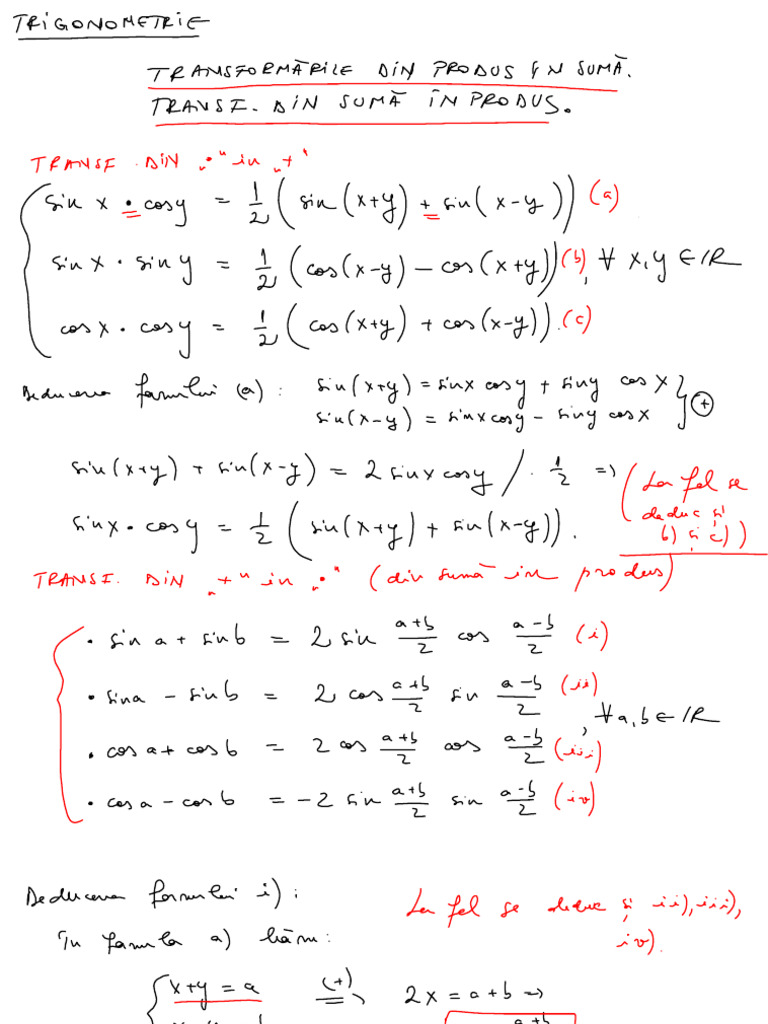 TRIGONOMETRIE
TRANSFORMĂRILE DIN PRODUS ÎN SUMĂ.
TRANSF. DIN SUMĂ ÎN PRODUS.
TRANSF. DIN „•" in „+"
sin x • cos y = 1/2 ( sin(x+y) + sin(x-y)) (a)
sin x • sin y = 1/2 (cos(x-y) - cos(x+y)) (b), ∀ x,y ∈ IR
cos x • cos y = 1/2 (cos(x+y) + cos(x-y)). (c)
Deducerea formulei (a) : sin(x+y) = sinx cosy + siny cos x
sin(x-y) = sinx cosy - siny cosx } (+)
sin(x+y) + sin(x-y) = 2 sinx cosy / · 1/2 =>
(La fel se deduc și b) și c))
sinx • cosy = 1/2 (sin(x+y) + sin(x-y)).
TRANSF. DIN „+" in „•" (din sumă in produs)
• sin a + sin b = 2 sin (a+b)/2 cos (a-b)/2 (i)
• sin a - sin b = 2 cos (a+b)/2 sin (a-b)/2 (ii)
, ∀ a,b ∈ IR
• cos a + cos b = 2 cos (a+b)/2 cos (a-b)/2 (iii)
• cos a - cos b = -2 sin (a+b)/2 sin (a-b)/2 (iv)
Deducerea formulei i) :
La fel se deduc și ii), iii), iv).
În formula a) luăm :
x+y = a (+) => 2x = a+b =>